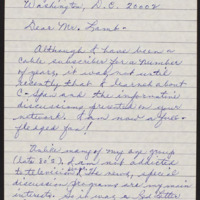 Washington, D.C. 20002
Dear Mr. Lamb -
Although I have been a
cable subscriber for a number
of years, it was not until
recently that I learned about
C-Span and the informative
discussions presented on your
network. I am now a full-
fledged fan!
Unlike many of my age group
(late 80's), I am not addicted
to television. The news, special
discussion programs are my main
interests. So it was a